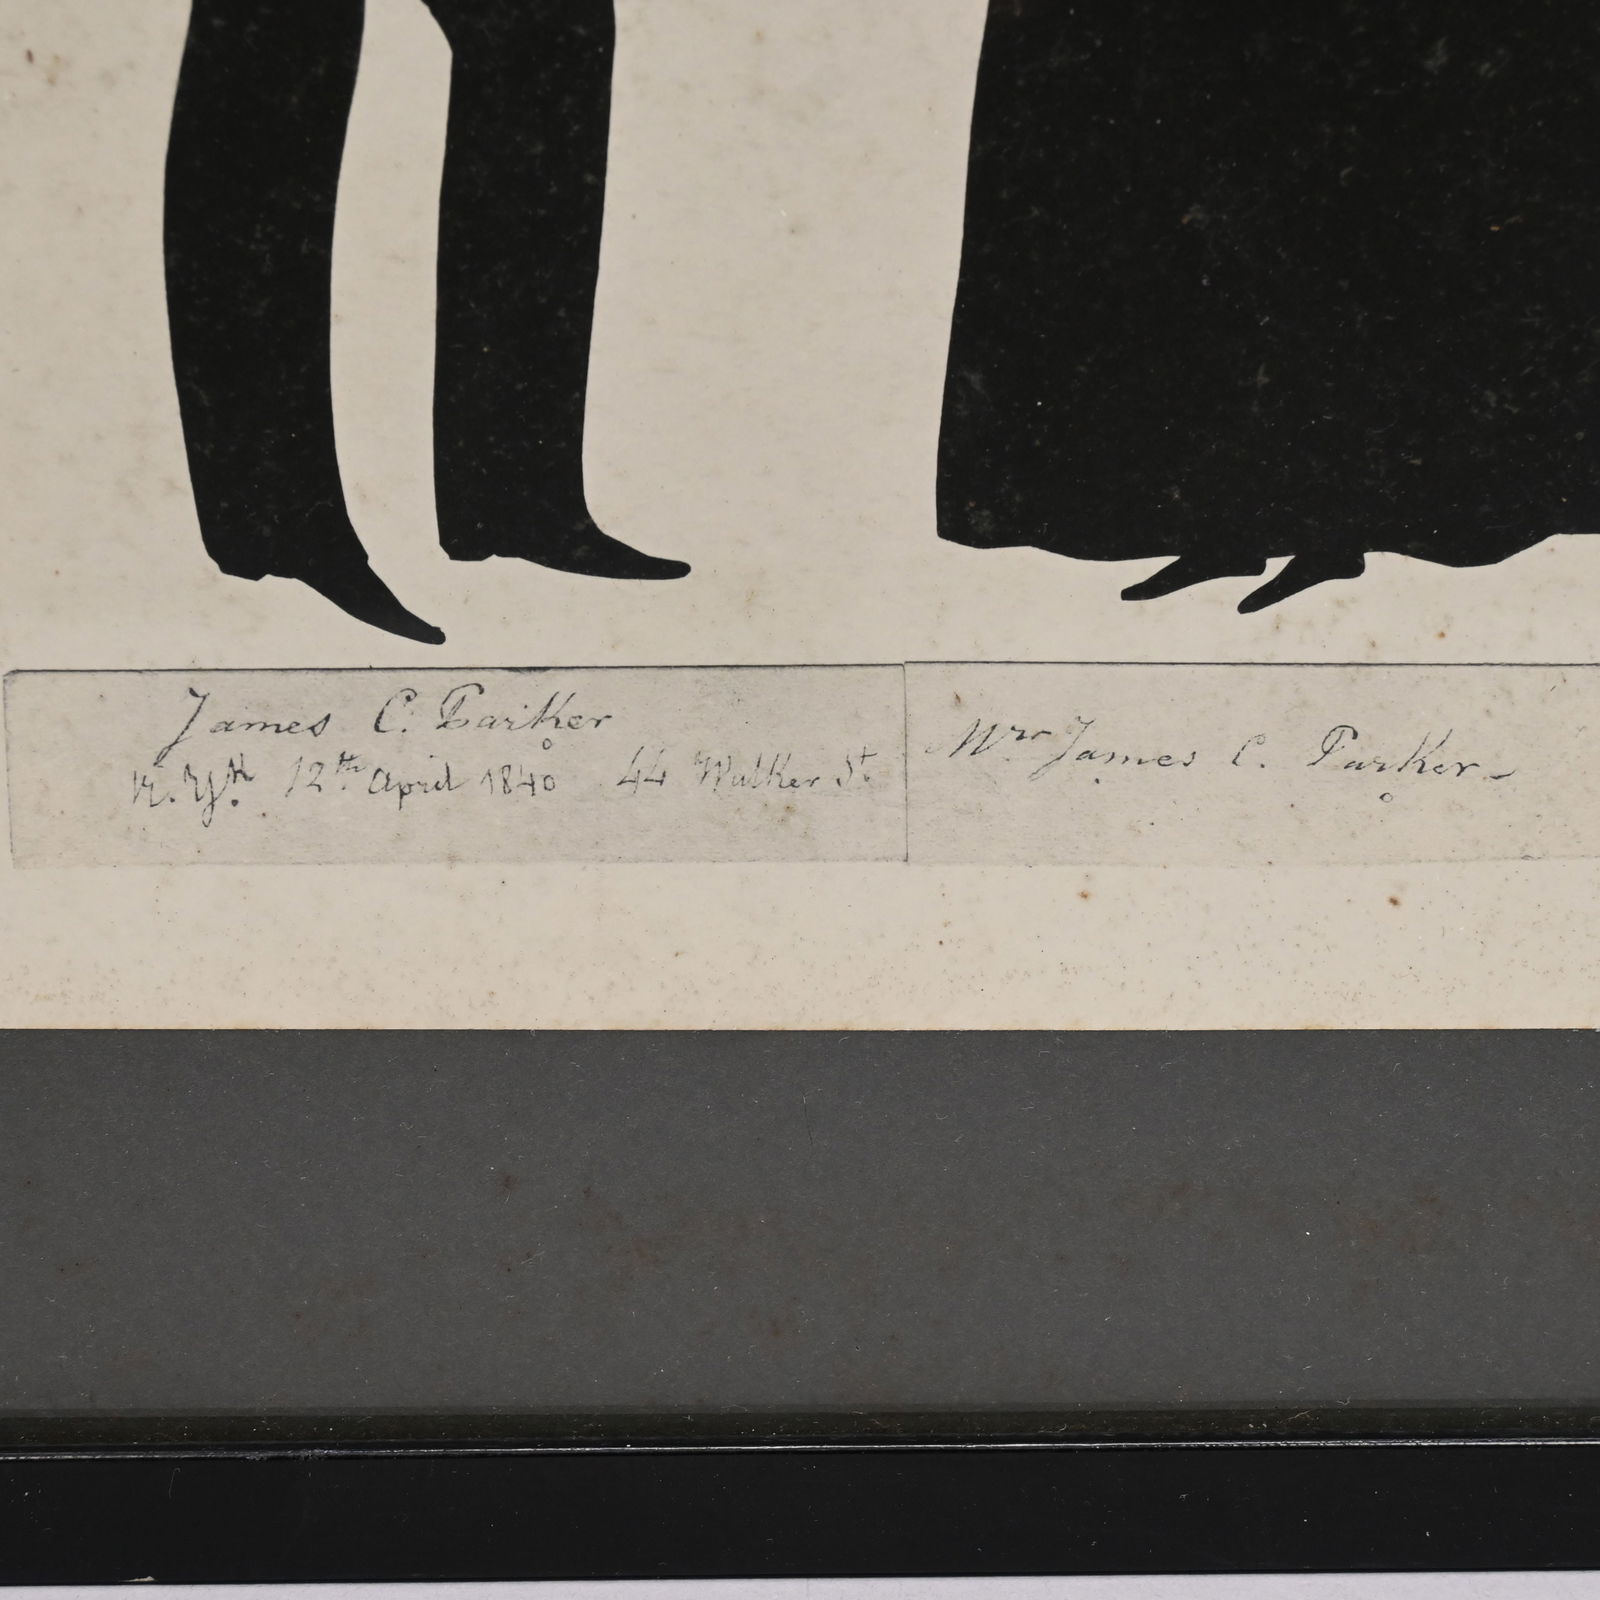 James C. Parker
N. Yk. 12th April 1840 44 Walker St
Mrs James C. Parker